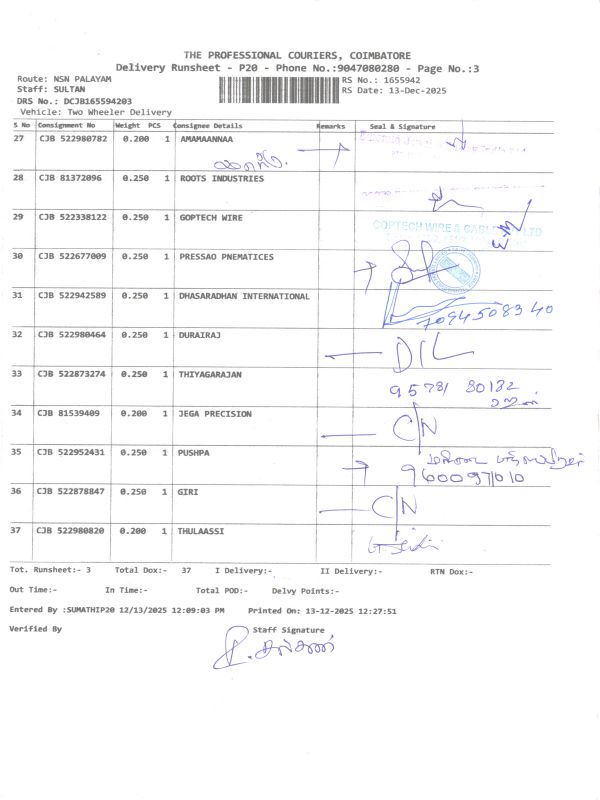 THE PROFESSIONAL COURIERS, COIMBATORE
Delivery Runsheet - P20 - Phone No.:9047080280 - Page No.:3
Route: NSN PALAYAM RS No.: 1655942
Staff: SULTAN RS Date: 13-Dec-2025
DRS No.: DCJB165594203
Vehicle: Two Wheeler Delivery
S No Consignment No Weight PCS Consignee Details Remarks Seal & Signature
27 CJB 522980782 0.200 1 AMAMAANNAA
28 CJB 81372096 0.250 1 ROOTS INDUSTRIES
29 CJB 522338122 0.250 1 GOPTECH WIRE
30 CJB 522677009 0.250 1 PRESSAO PNEMATICES
31 CJB 522942589 0.250 1 DHASARADHAN INTERNATIONAL 7094508340
32 CJB 522980464 0.250 1 DURAIRAJ D/L
33 CJB 522873274 0.250 1 THIYAGARAJAN 95781 80132
34 CJB 81539409 0.200 1 JEGA PRECISION C/N
35 CJB 522952431 0.250 1 PUSHPA 9600971010
36 CJB 522878847 0.250 1 GIRI C/N
37 CJB 522980820 0.200 1 THULAASSI
Tot. Runsheet:- 3 Total Dox:- 37 I Delivery:- II Delivery:- RTN Dox:-
Out Time:- In Time:- Total POD:- Delvy Points:-
Entered By :SUMATHIP20 12/13/2025 12:09:03 PM Printed On: 13-12-2025 12:27:51
Verified By Staff Signature